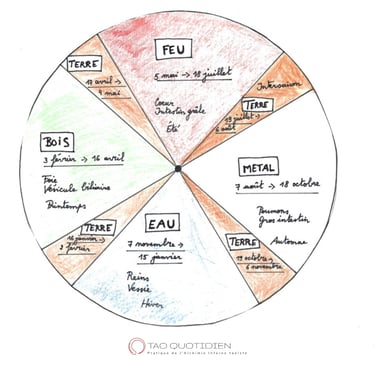 FEU
5 mai → 18 juillet
Coeur
Intestin grêle
Été
TERRE
17 avril →
4 mai
Intersaison
TERRE
19 juillet →
6 août
BOIS
3 février → 16 avril
Foie
Vésicule biliaire
Printemps
METAL
7 août → 18 octobre
Poumons
Gros intestin
Automne
TERRE
16 janvier →
2 février
EAU
7 novembre →
15 janvier
Reins
Vessie
Hiver
TERRE
19 octobre →
6 novembre
TAO QUOTIDIEN
Pratique de l'Alchimie Interne taoïste